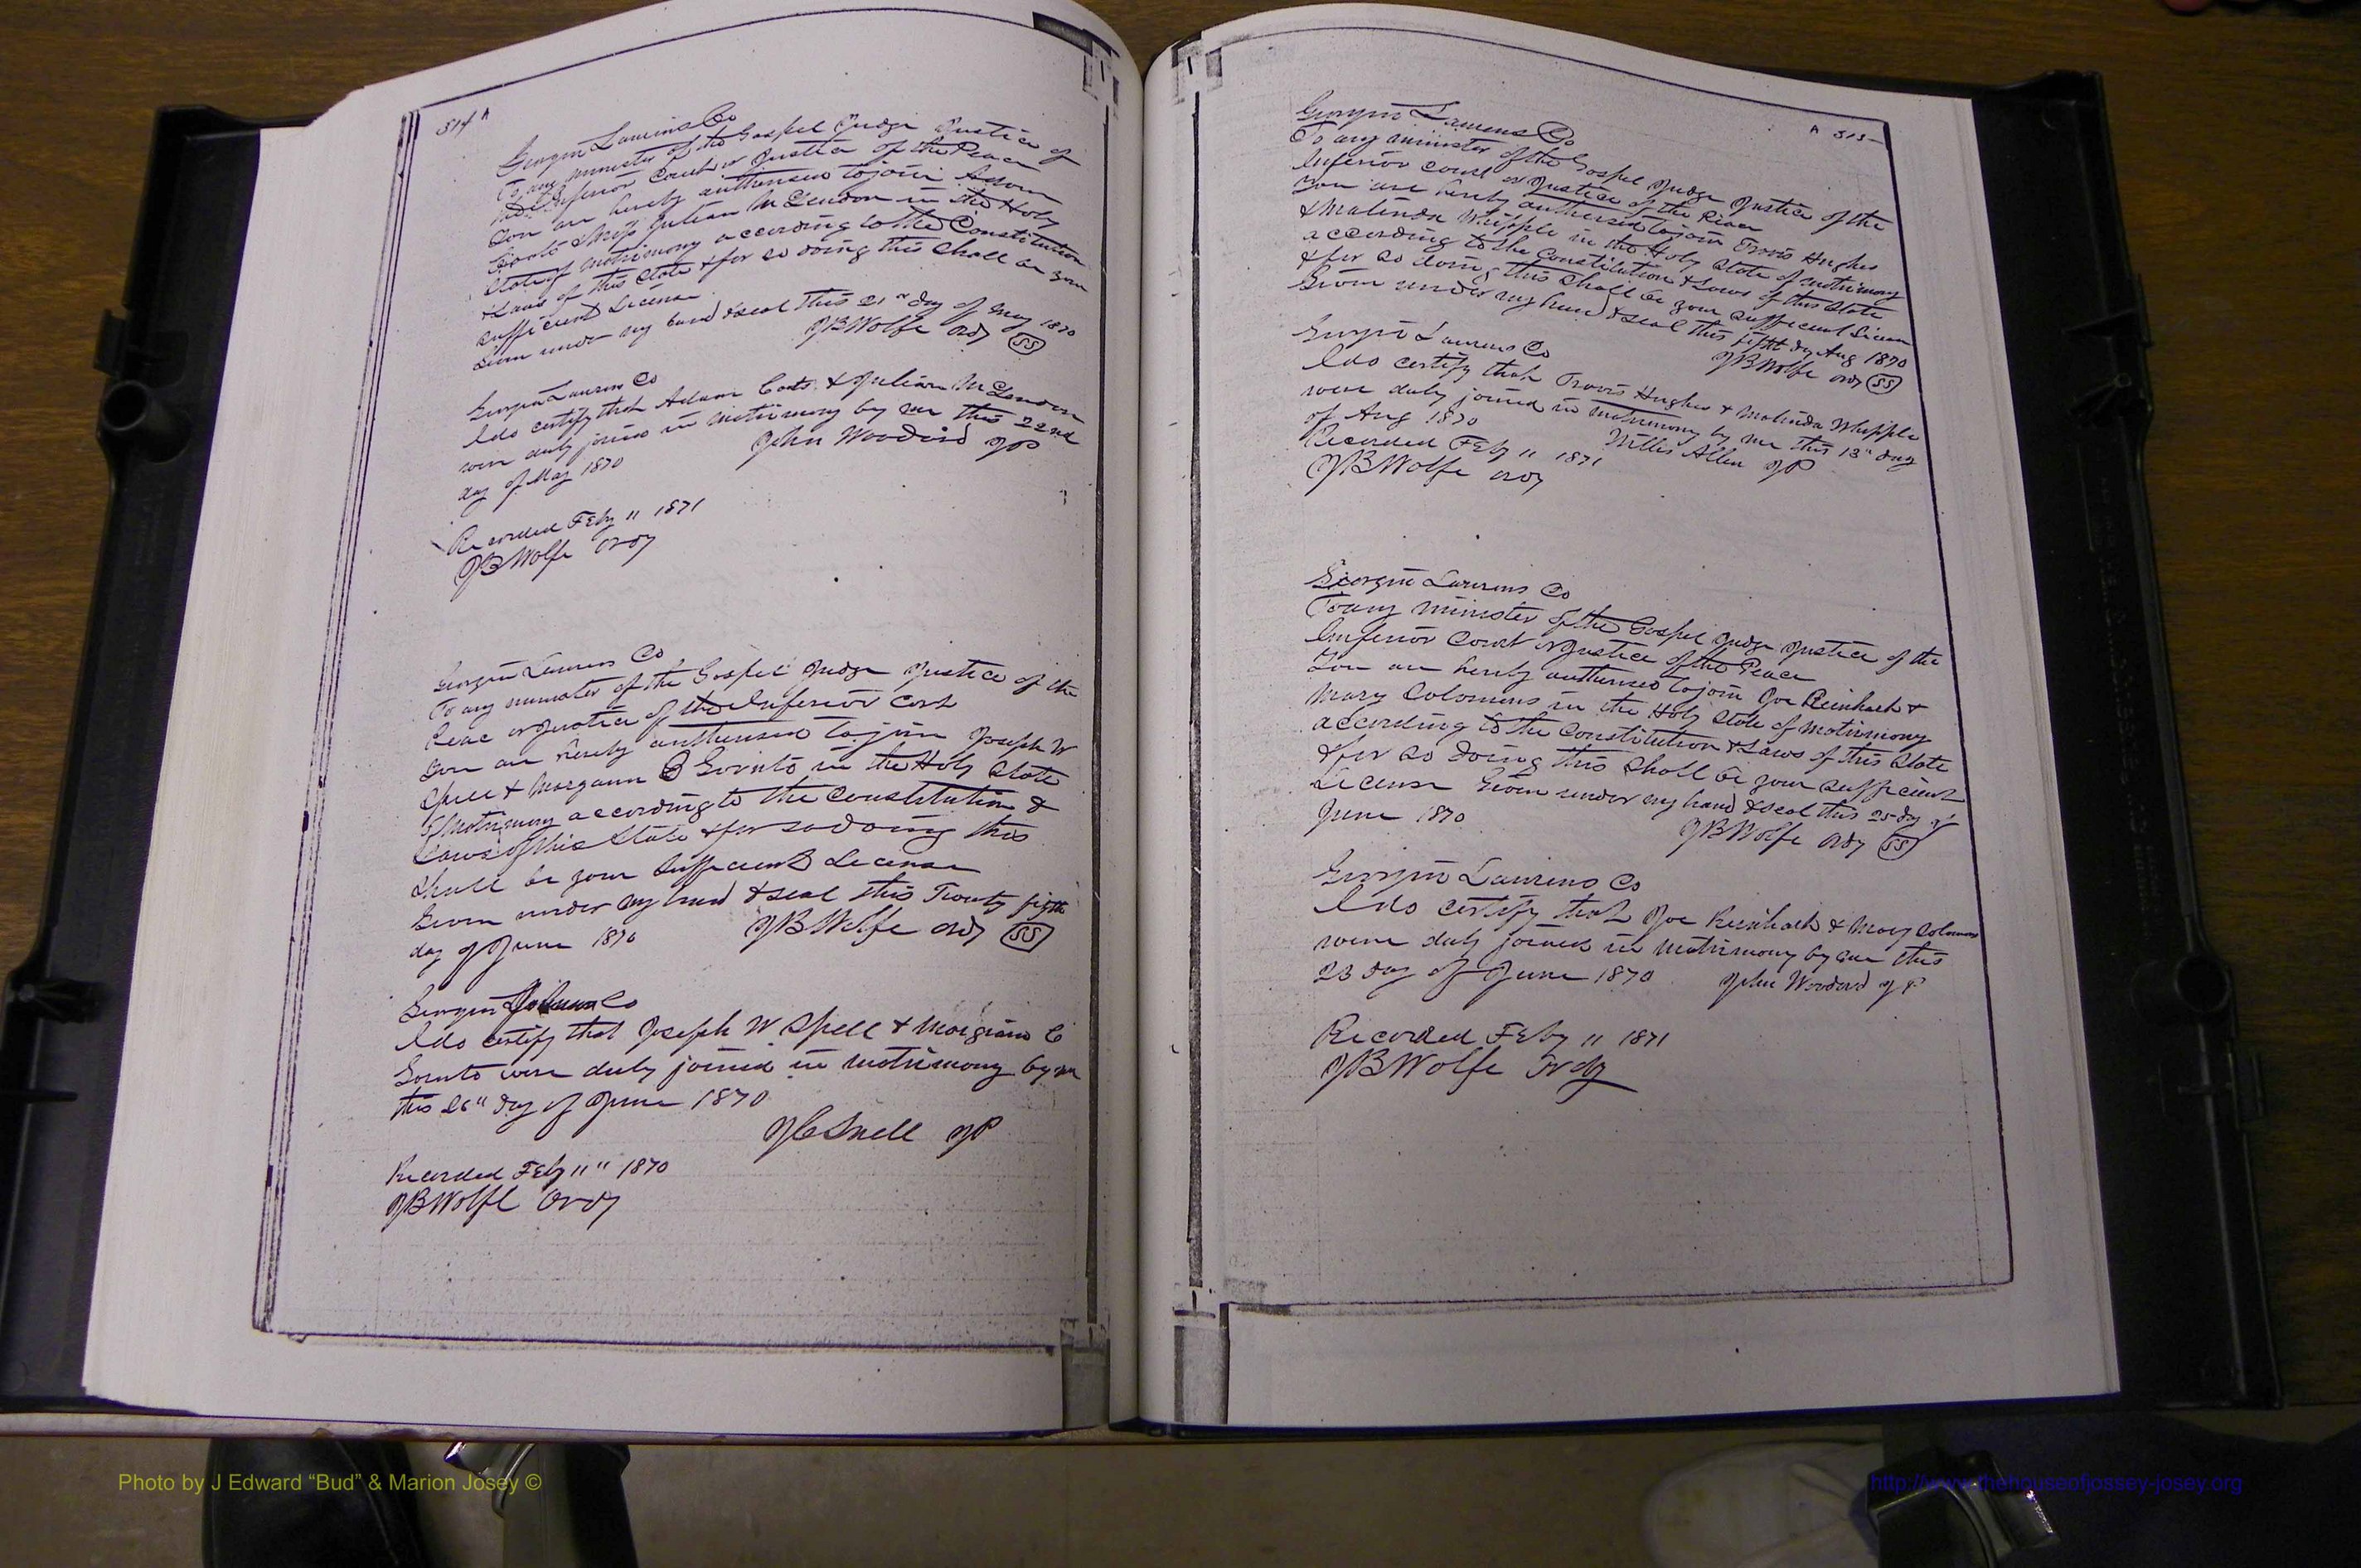 514 A
Georgia Laurens Co
To any minister of the Gospel Judge Justice of
the Inferior Court or Justice of the Peace
You are hereby authorised to join Adam
Coats & Miss Julian McLendon in the Holy
State of Matrimony according to the Constitution
& Laws of this State & for so doing this shall be your
sufficient License
Given under my hand & seal this 21" day of May 1870
JBWolfe Ordy SS
Georgia Laurens Co
I do certify that Adam Coats & Julian McLendon
were duly joined in matrimony by me this 22nd
day of May 1870
John Woodard JP
Recorded Feby 11 1871
JBWolfe Ordy
Georgia Laurens Co
To any minister of the Gospel Judge Justice of the
Peac or Justice of the Inferior Cort
You are hereby authorised to join Joseph W
Spell & Morgann Gornto in the Holy State
of Matrimony according to the Constitution &
Laws of this State & for so doing this
Shall be your Sufficient License
Given under my hand & seal this Twenty fifth
day of June 1870
JBWolfe Ordy SS
Georgia Co
I do certify that Joseph W Spell & Morgiann C
Gornto were duly joined in matrimony by me
this 26" day of June 1870
JP
Recorded Feby 11" 1870
JBWolfe Ordy
A 515
Georgia Laurens Co
To any minister of the Gospel Judge Justice of the
Inferior court or Justice of the Peace
You are hereby authorised to join Travis Hughes
& Malinda Whipple in the Holy State of matrimony
according to the Constitution & Laws of this State
& for so doing this Shall be your sufficient License
Given under my hand & seal this fifth dy Aug 1870
JBWolfe Ordy SS
Georgia Laurens Co
I do certify that Travis Hughes & Malinda Whipple
were duly joined in matrimony by me this 13" day
of Aug 1870
Willis Allen JP
Recorded Feby 11 1871
JBWolfe Ordy
Georgia Laurens Co
To any minister of the Gospel Judge Justice of the
Inferior Court or Justice of the Peace
You are hereby authorised to join Joe Reinhach &
Mary Colomans in the Holy State of Matrimony
according to the Constitution & Laws of this State
& for so doing this Shall be your sufficient
License Given under my hand & seal this 25 dy of
June 1870
JBWolfe Ordy SS
Georgia Laurens Co
I do certify that Joe Reinhach & Mary Colomans
were duly joined in matrimony by me this
23 day of June 1870
John Woodard JP
Recorded Feby 11 1871
JBWolfe Ordy
Photo by J Edward “Bud” & Marion Josey ©
http://www.thehouseofjossey-josey.org